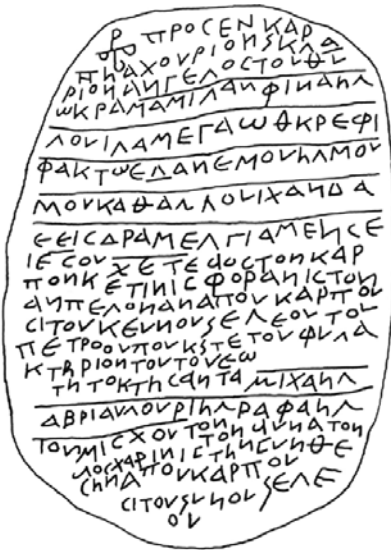 ΠΡΟСΕΝΚΑΡ
ΠΗΑΧΟΥΡΙΟΝSΚΛΗ
ΡΙΟΝΑΝΓΕΛΟСΤΟΥΘΥ
ωΚΡΑΜΑΜΙΛΑΗΦΙΝΑΗΛ
ΛΟΥΙΛΑΜΕΓΑωΘΚΡΕΦΙ
ΦΑΚΤωΕΛΑΠΕΜΟΥΗΛΜΟΥ
ΜΟΥΚΑΘΑΛΛΟΥΙΧΑΝΔΑ
ΕΕΙСΔΡΑΜΕΛΓΙΑΜΕΗСΕ
ΙΕСΟΥΧΕΤΕΔΟСΤΟΝΚΑΡ
ΠΟΝΚΕΤΙΝΙСΦΟΡΑΝΙСΤΟΝ
ΑΝΠΕΛΟΝΑΝΑΠΟΥΚΑΡΠΟΥ
СΙΤΟΥΚΕΥΝΟΥSΕΛΕΟΥΤΟΥ
ΠΕΤΡΟΟΥΠΟΥΚSΤΕΤΟΥΦΥΛΑ
ΚΤΗΡΙΟΝΤΟΥΤΟΥΕω
ΤΗΤΟΚΤΗСΑΝΤΑΜΙΧΑΗΛ
ΑΒΡΙΑΥΛΟΥΡΙΗΛΡΑΦΑΗΛ
ΤΟΥΜΙСΧΟΥΤΟΠΤΟΝΔΥΝΑΤΟΝ
ΛΟСΧΑΡΙΝΙСΤΗΝСΥΝΘΕ
СΗΝΑΠΟΥΚΑΡΠΟΥ
СΙΤΟΥSΥΝΟΥSΕΛΕ
ΟΥ